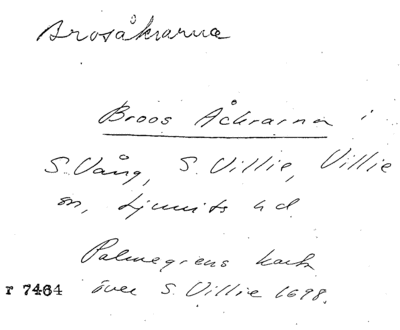 Brosåkrarna
Broos Åckrarna i
S. Vång, S. Villie, Villie
sn, Ljunits hd.
Palmegrens karta
r 7464 över S. Villie 1698.